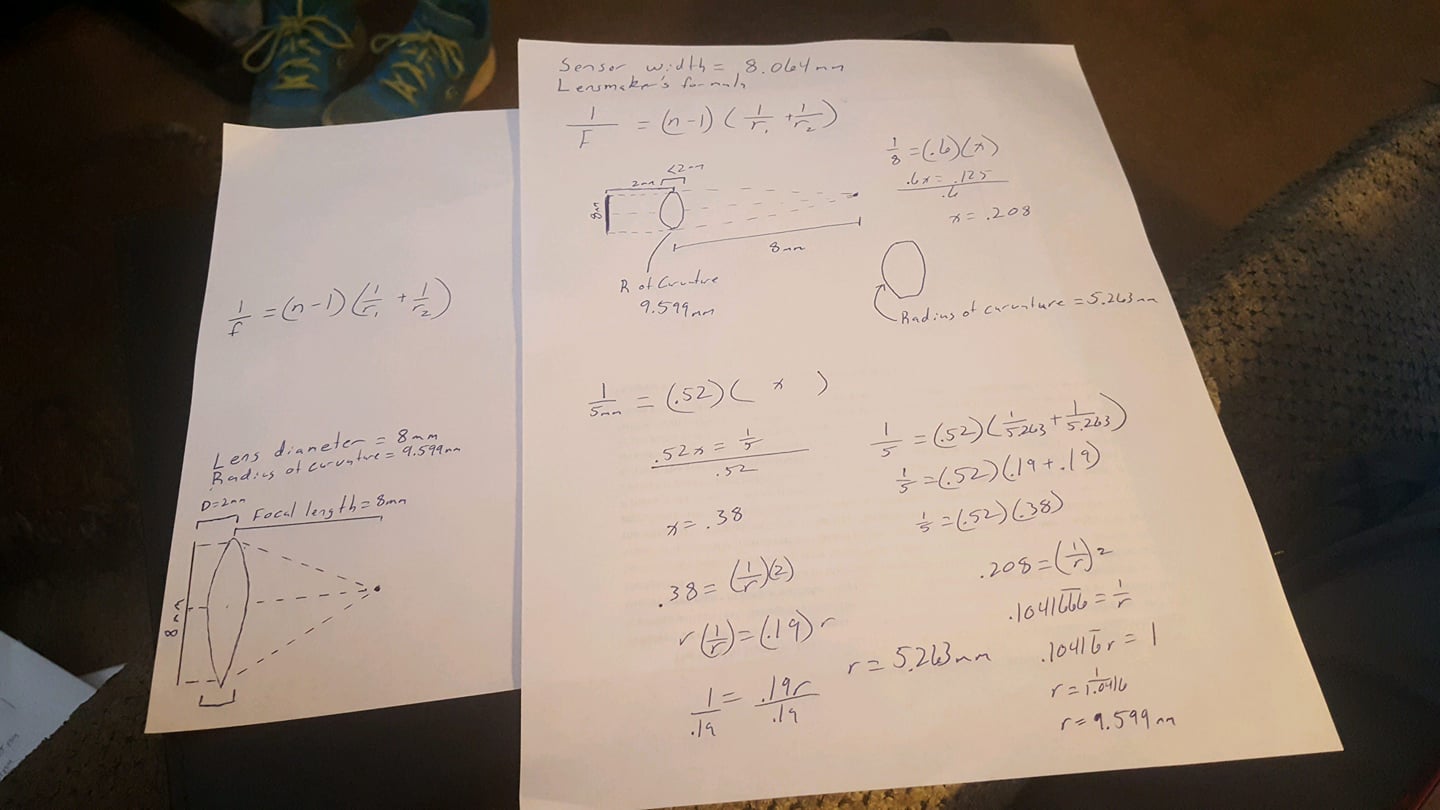 1/f = (n-1)(1/r₁ + 1/r₂)
Lens diameter = 8mm
Radius of curvature = 9.599mm
D=2mm
Focal length = 8mm
8mm
Sensor width = 8.064mm
Lensmaker's formula
1/F = (n-1)(1/r₁ + 1/r₂)
<2mm
2mm
8mm
8mm
R of Curvture
9.599mm
1/8 = (.6)(x)
.6x = .125
.6
x = .208
Radius of curvature = 5.263mm
1/5mm = (.52)( x )
.52x = 1/5
.52
x = .38
.38 = (1/r)(2)
r(1/r) = (.19)r
1/.19 = .19r/.19
r = 5.263mm
1/5 = (.52)(1/5.263 + 1/5.263)
1/5 = (.52)(.19 + .19)
1/5 = (.52)(.38)
.208 = (1/r)2
.1041666 = 1/r
.10416r = 1
r = 1/1.0416
r = 9.599mm